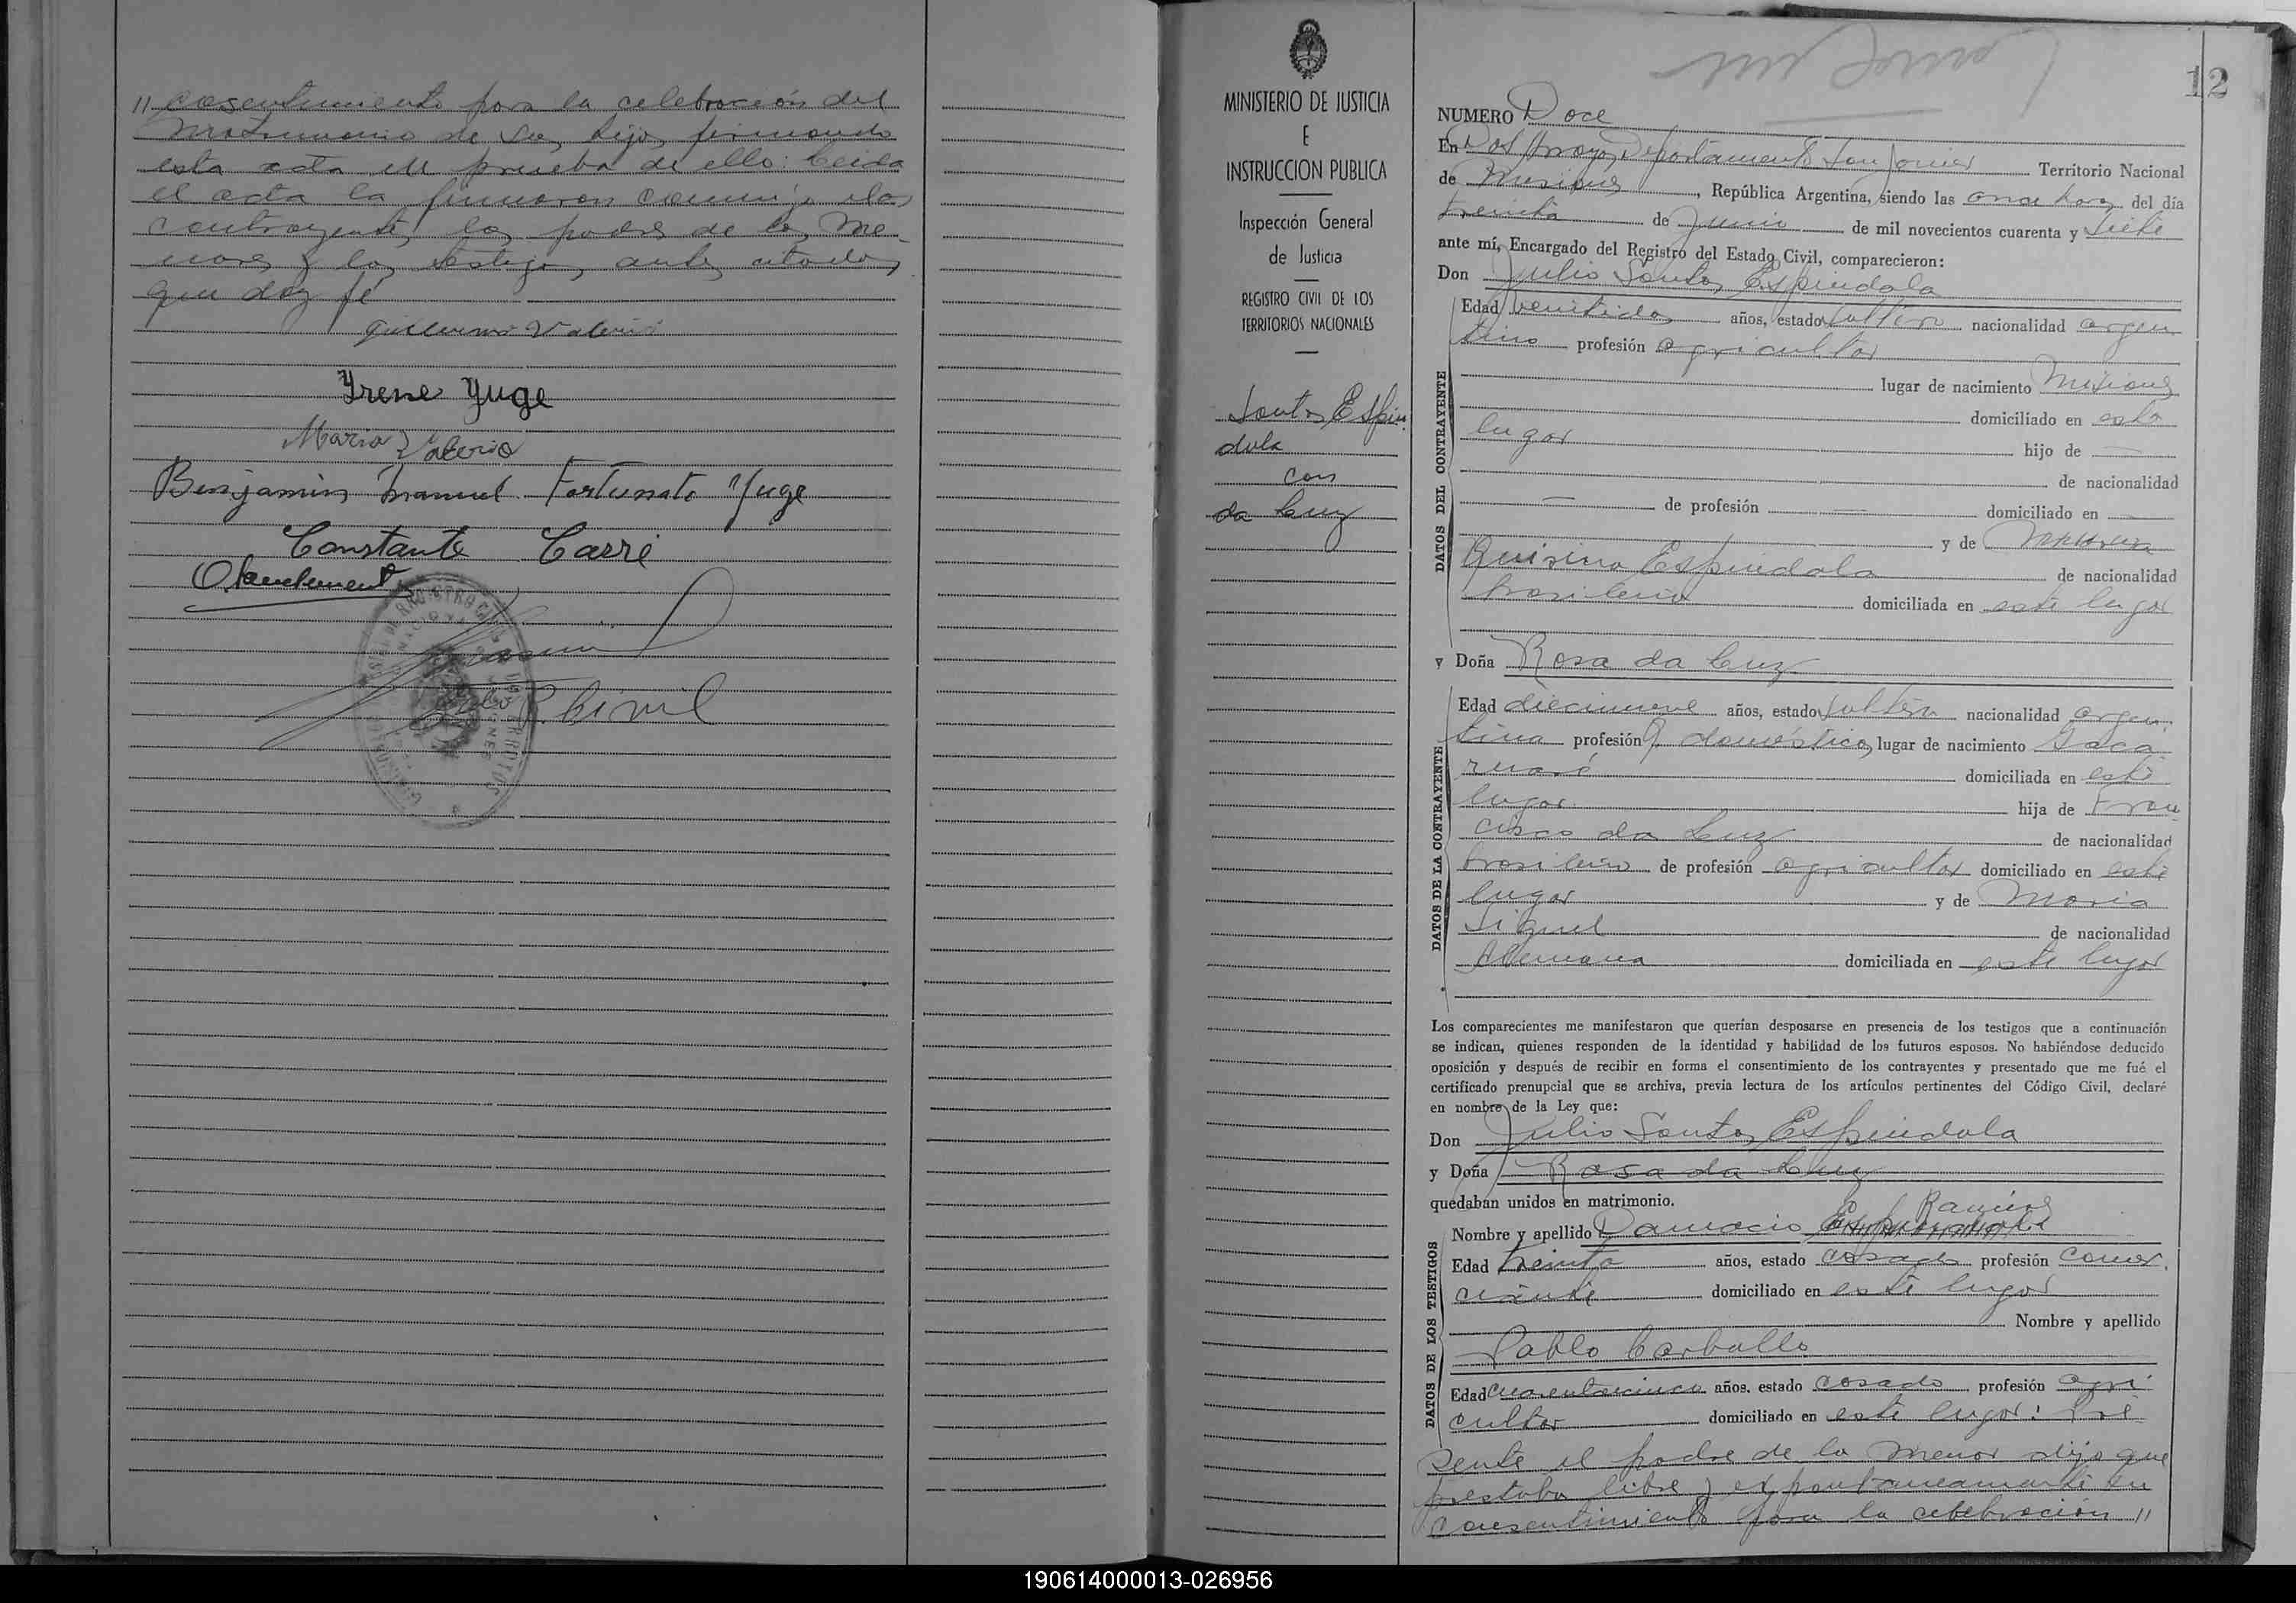 // cosentimiento para la celebración del
matrimonio de sus hijos firmando
esta acta en prueba de ello: Leida
el acta la firmaron conmigo los
contrayentes, los padres de los me-
nores y los testigos antes citados
que doy fé
Guillermo Valerio
Yrene Yuge
Maria Valerio
Benjamin Manuel Fortunato Yuge
Constante Carré
12
MINISTERIO DE JUSTICIA
E
INSTRUCCION PUBLICA
Inspección General
de Justicia
REGISTRO CIVIL DE LOS
TERRITORIOS NACIONALES
Santos Espin
dola
con
da Luz
NUMERO Doce
En Dos Arroyos, Departamento San Javier Territorio Nacional
de Misiones, República Argentina, siendo las once horas del día
treinta de Junio de mil novecientos cuarenta y siete
ante mí, Encargado del Registro del Estado Civil, comparecieron:
Don Julio Santos Espindola
DATOS DEL CONTRAYENTE
Edad veintidos años, estado soltero nacionalidad argen
tino profesión agricultor
lugar de nacimiento Misiones
domiciliado en este
lugar hijo de —
de nacionalidad
— de profesión — domiciliado en —
y de
Espindola de nacionalidad
brasilera domiciliada en este lugar
y Doña Rosa da Luz
DATOS DE LA CONTRAYENTE
Edad diecinueve años, estado soltera nacionalidad argen
tina profesión q. domésticos, lugar de nacimiento Saca
domiciliada en este
lugar hija de Fran
cisco da Luz de nacionalidad
brasilero de profesión agricultor domiciliado en este
lugar y de Maria
de nacionalidad
Alemana domiciliada en este lugar
Los comparecientes me manifestaron que querían desposarse en presencia de los testigos que a continuación
se indican, quienes responden de la identidad y habilidad de los futuros esposos. No habiéndose deducido
oposición y después de recibir en forma el consentimiento de los contrayentes y presentado que me fué el
certificado prenupcial que se archiva, previa lectura de los artículos pertinentes del Código Civil, declaré
en nombre de la Ley que:
Don Julio Santos Espindola
y Doña Rosa da Luz
quedaban unidos en matrimonio.
DATOS DE LOS TESTIGOS
Nombre y apellido Damacio Ramírez
Edad treinta años, estado casado profesión comer
ciante domiciliado en este lugar
Nombre y apellido
Pablo Carballo
Edad cuarentacinco años, estado casado profesión agri
cultor domiciliado en este lugar: Pre
sente el padre de la menor dijo que
prestaba libre y expontaneamente su
consentimiento para la celebración //
190614000013-026956